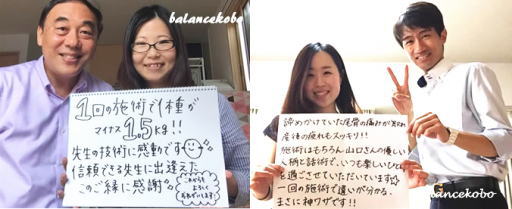 balancekobo
1回の施術で1種が
マイナス 1.5kg!!
先生の技術に感動です
信頼できる先生に出逢えた
このご縁に感謝
これからも
よろしく
お願いします
諦めかけていた尾骨の痛みが取れ
産後の疲れもスッキリ!!
施術はもちろん山口さんの優しい
人柄と話術で、いつも楽しいひととき
を過ごさせていただいています
一回の施術で違いが分かる、
まさに神ワザです!!
balancekobo